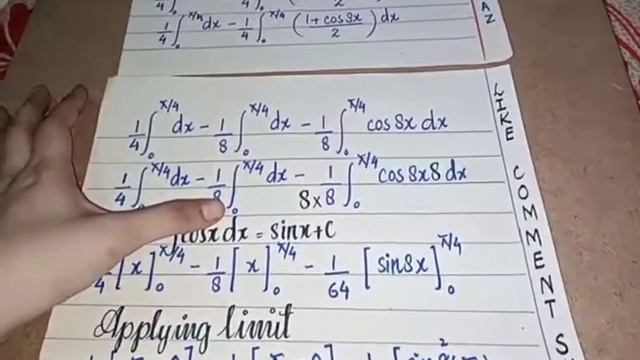 1/4 ∫₀^π/4 dx - 1/4 ∫₀^π/4 (1+cos8x/2) dx
AZ
1/4 ∫₀^π/4 dx - 1/8 ∫₀^π/4 dx - 1/8 ∫₀^π/4 cos8x dx
1/4 ∫₀^π/4 dx - 1/8 ∫₀^π/4 dx - 1/8×8 ∫₀^π/4 cos8x8 dx
∫cosx dx = sinx+c
1/4 [x]₀^π/4 - 1/8 [x]₀^π/4 - 1/64 [sin8x]₀^π/4
Applying limit
LIKE COMMENT S